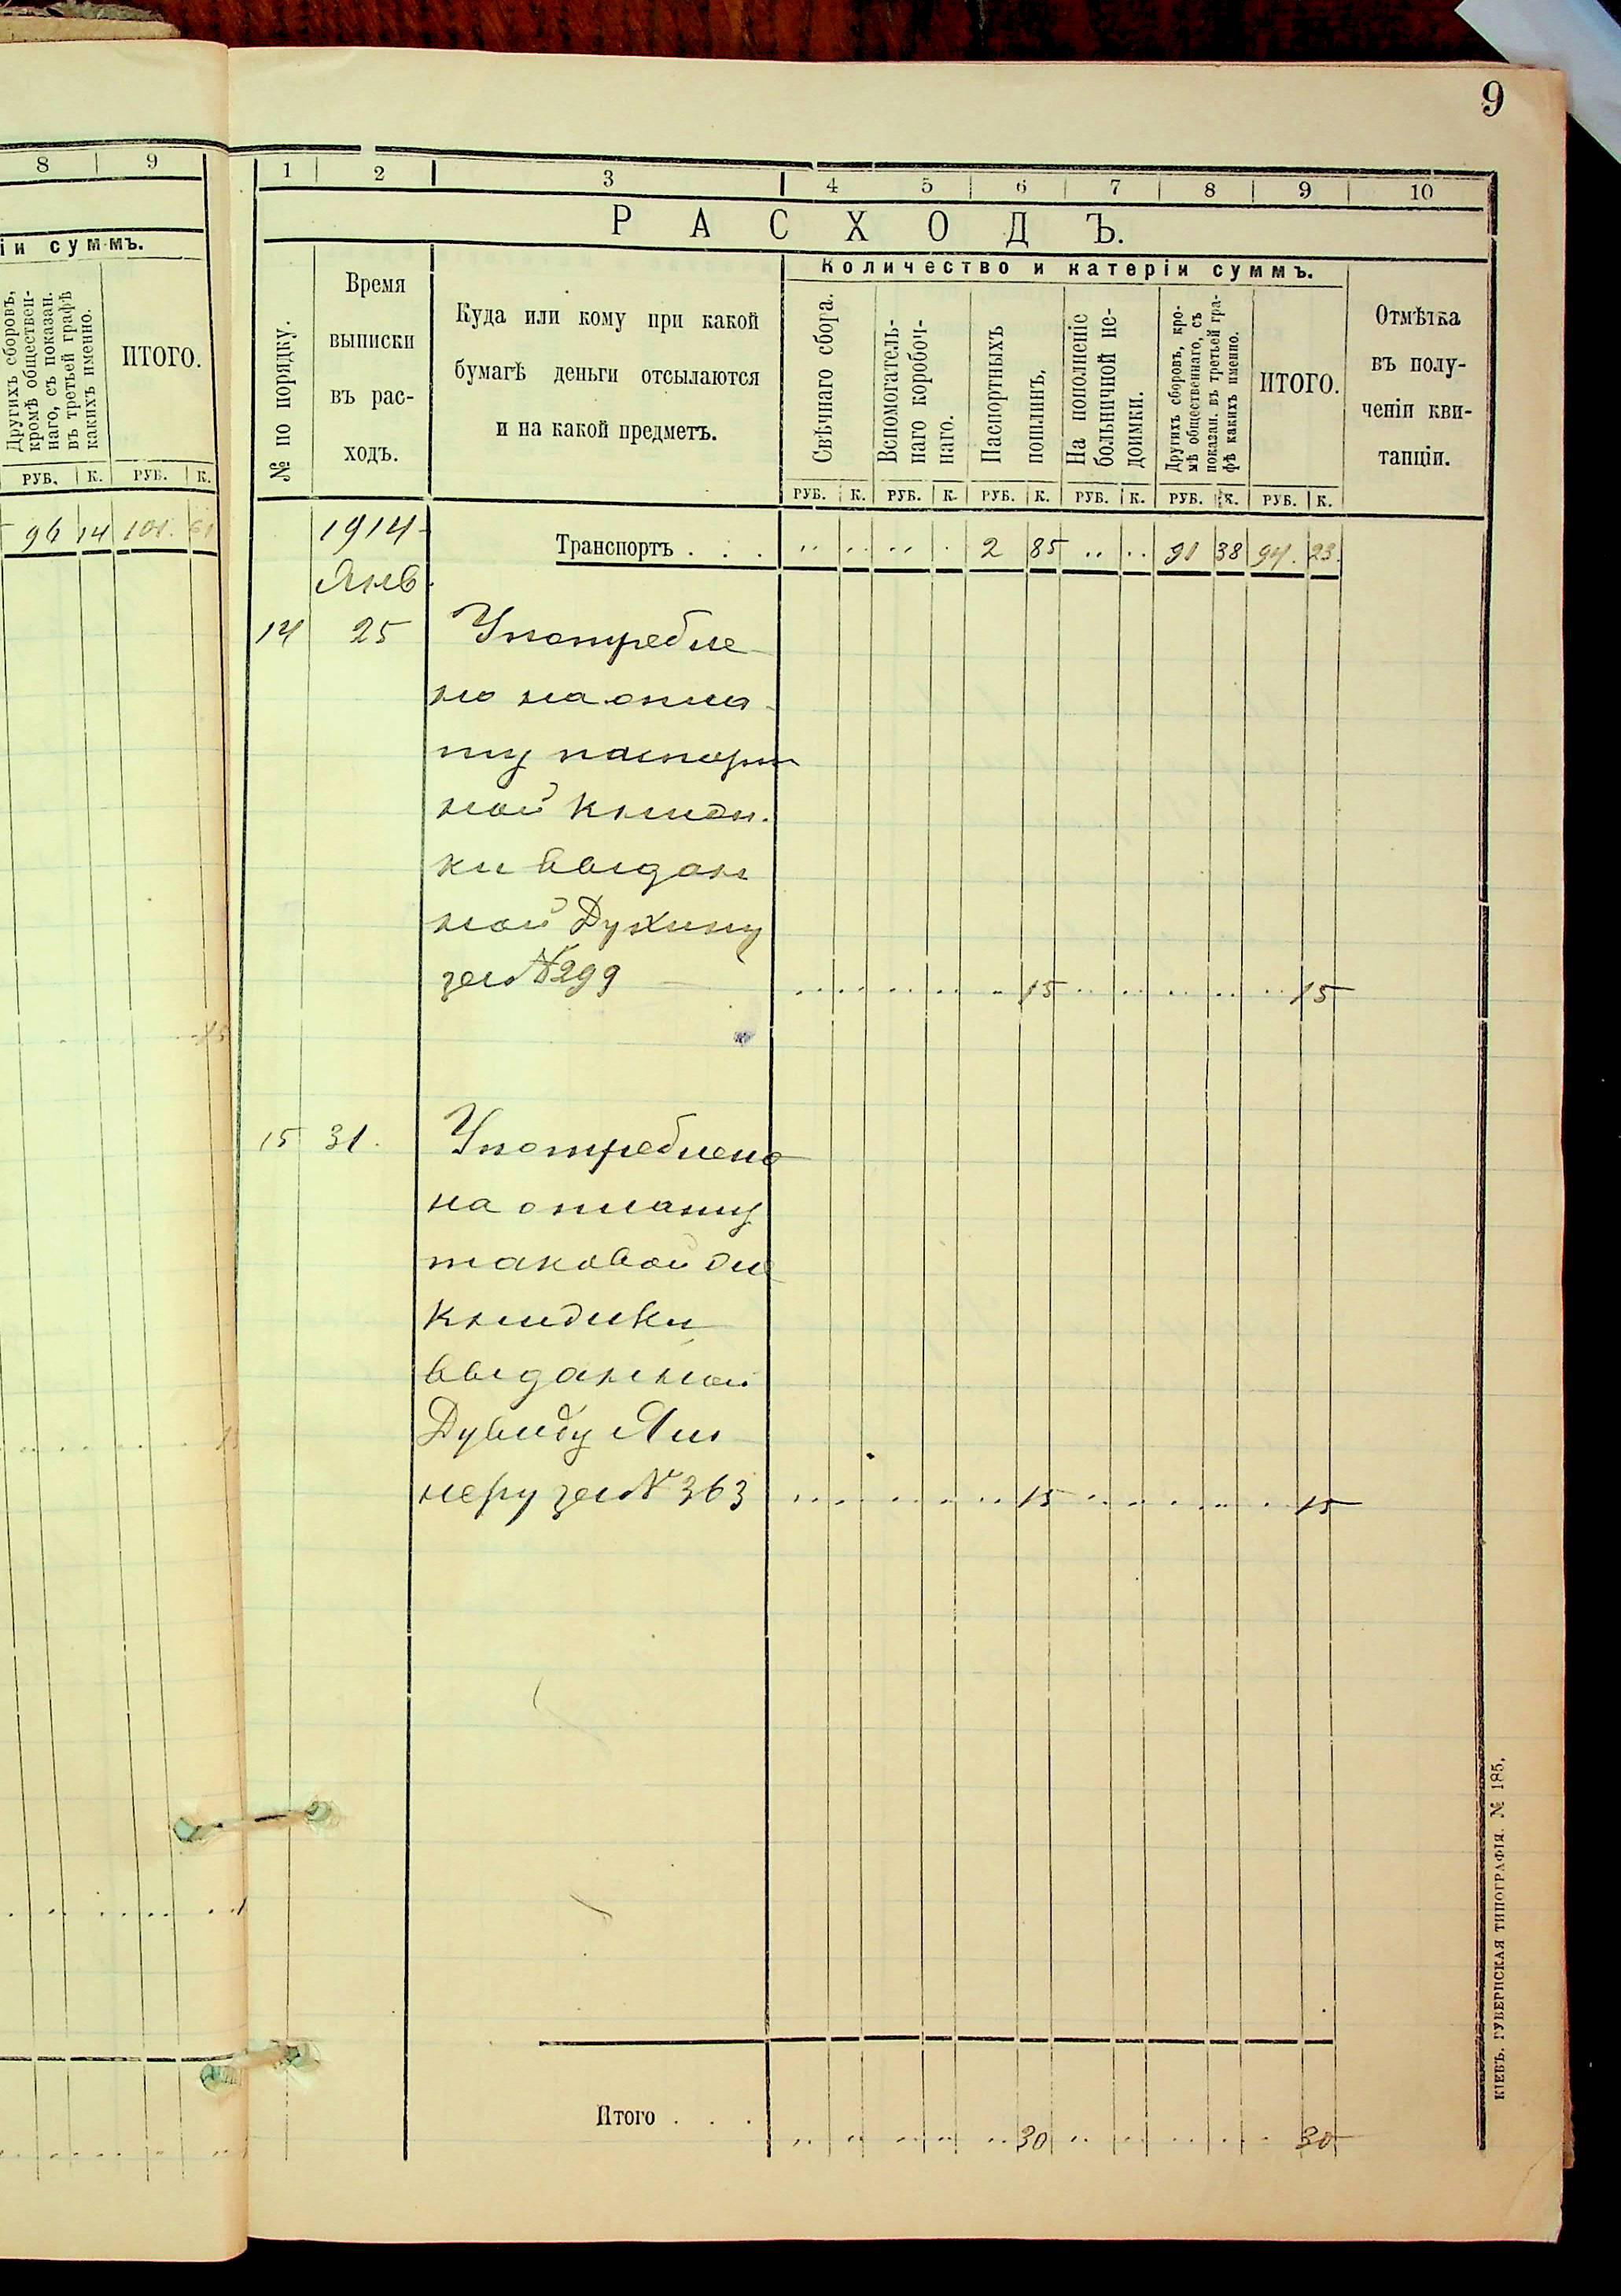 9
8 9
іи суммъ.
Другихъ сборовъ,
кромѣ обществен-
наго, съ показан.
въ третьей графѣ
какихъ именно.
ИТОГО.
РУБ. К. РУБ. К.
96 14 101.
15
1 2 3 4 5 6 7 8 9 10
РАСХОДЪ.
№ по порядку.
Время
выписки
въ рас-
ходъ.
Куда или кому при какой
бумагѣ деньги отсылаются
и на какой предметъ.
Количество и катерги суммъ.
Свѣчнаго сбора.
Вспомогатель-
наго коробоч-
наго.
Паспортныхъ
пошлинъ.
На пополненіе
больничной не-
доимки.
Другихъ сборовъ, кро-
мѣ общественнаго, съ
показан. въ третьей гра-
фѣ какихъ именно.
ИТОГО.
Отмѣтка
въ полу-
ченіи кви-
танціи.
РУБ. К. РУБ. К. РУБ. К. РУБ. К. РУБ. К. РУБ. К.
1914
Транспортъ . . . 2 85 91 38 94. 23.
Янв.
14 25 Употребле
но на опла
ту паспорт
ной книж
ки выдан
ной
за № 299 15 15
15 31. Употреблено
на оплату
таковой же
книжки
выданной
Дувиду Лин
неру за № 363 15 15
Итого . . . 30 30
КІЕВЪ. ГУБЕРНСКАЯ ТИПОГРАФІЯ. № 185.